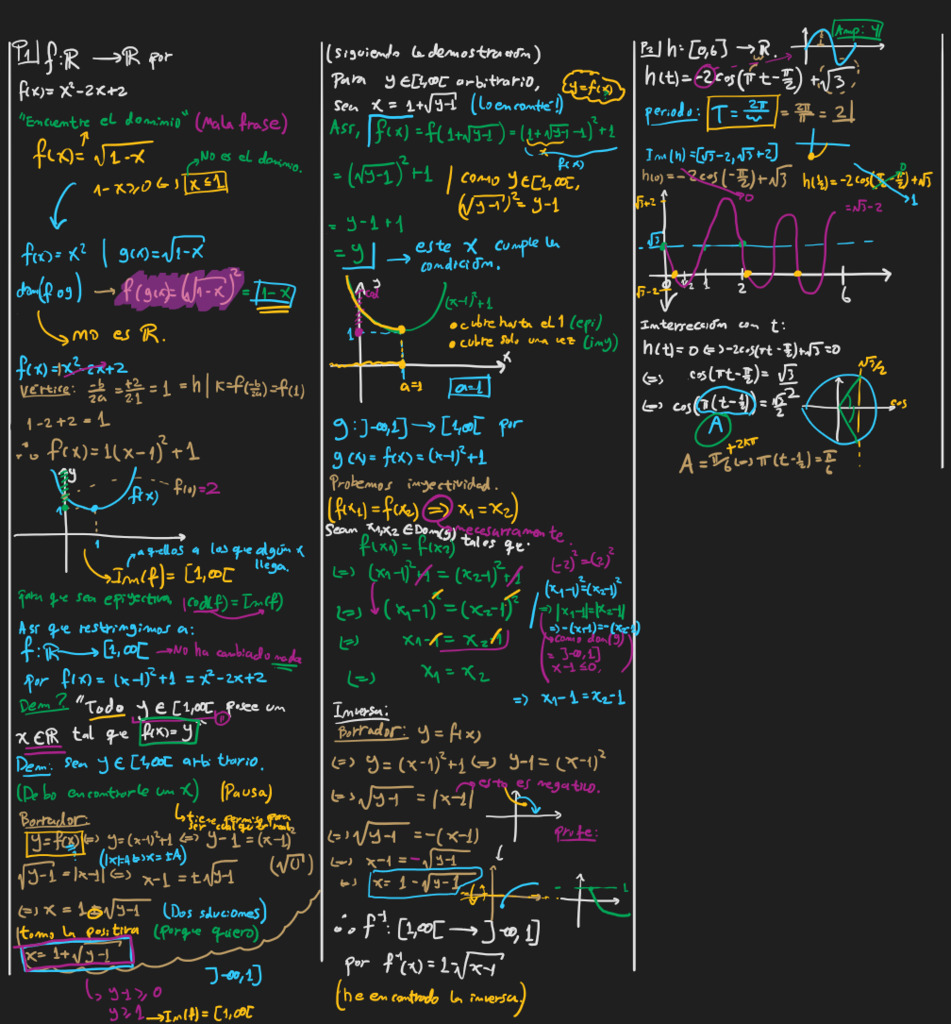 P1| f: ℝ → ℝ por
f(x) = x²-2x+2
"Encuentre el dominio" (Mala frase)
f(x) = √(1-x)
No es el dominio.
1-x ≥ 0 ⇔ x ≤ 1
f(x) = x² | g(x) = √(1-x)
dom(f∘g) → f(g(x)) = (√(1-x))² = 1-x
no es ℝ.
f(x) = 1x²-2x+2
Vértice: -b/2a = +2/2·1 = 1 = h | k = f(-b/2a) = f(1)
1-2+2 = 1
∴ f(x) = 1(x-1)²+1
y
f(x)
f(0) = 2
1
1
aquellos a los que algún x
llega.
Im(f) = [1,∞[
para que sea epiyectiva (cod(f) = Im(f)
Así que restringimos a:
f: ℝ → [1,∞[ → No ha cambiado nada
por f(x) = (x-1)²+1 = x²-2x+2
Dem? "Todo y ∈ [1,∞[ posee un
x ∈ ℝ tal que f(x) = y"
Dem: sea y ∈ [1,∞[ arbitrario.
(Debo encontrarle un x) (Pausa)
Borrador:
y = f(x) ⇔ y = (x-1)²+1 ⇔ y-1 = (x-1)²
√(y-1) = |x-1| ⇔ x-1 = ±√(y-1)
⇔ x = 1±√(y-1) (Dos soluciones)
tomo la positiva (porque quiero)
x = 1+√(y-1)
]-∞,1]
↳ y-1 ≥ 0
y ≥ 1 → Im(f) = [1,∞[
(siguiendo la demostración)
Para y ∈ [1,∞[ arbitrario,
y = f(x)
sea x = 1+√(y-1) (Lo encontré!)
Así, f(x) = f(1+√(y-1)) = (1+√(y-1)-1)²+1
x
f(x)
= (√(y-1))²+1 | como y ∈ [1,∞[,
(√(y-1))² = y-1
= y-1+1
= y → este x cumple la
condición.
y
cod
(x-1)²+1
• cubre hasta el 1 (epi)
• cubre solo una vez (iny)
1
x
a=1
a=1
g: ]-∞,1] → [1,∞[ por
g(x) = f(x) = (x-1)²+1
Probemos inyectividad.
(f(x₁) = f(x₂) ⇒ x₁ = x₂)
necesariamente.
Sean x₁,x₂ ∈ Dom(g) tales que.
f(x₁) = f(x₂)
(-2)² = (2)²
⇔ (x₁-1)²+1 = (x₂-1)²+1
(x₁-1)² = (x₂-1)²
⇔ (x₁-1)² = (x₂-1)²
⇒ |x₁-1| = |x₂-1|
⇒ -(x₁-1) = -(x₂-1)
⇔ x₁-1 = x₂-1
como dom(g)
= ]-∞,1]
x-1 ≤ 0.
⇔ x₁ = x₂
⇒ x₁-1 = x₂-1
Inversa:
Borrador: y = f(x)
⇔ y = (x-1)²+1 ⇔ y-1 = (x-1)²
esto es negativo.
⇔ √(y-1) = |x-1|
⇔ √(y-1) = -(x-1)
profe:
⇔ x-1 = -√(y-1)
⇔ x = 1-√(y-1)
1
∴ f⁻¹: [1,∞[ → ]-∞,1]
por f⁻¹(x) = 1-√(x-1)
(he encontrado la inversa.)
Amp: 4
P2| h: [0,6] → ℝ.
h(t) = -2cos(πt-π/2)+√3
periodo: T = 2π/w = 2π/π = 2
Im(h) = [√3-2, √3+2]
h(0) = -2cos(-π/2)+√3
0
h(½) = -2cos(π/2-π/2)+√3
0
1
= √3-2
√3+2
√3
√3-2
0
½
1
2
6
Intersección con t:
h(t) = 0 ⇔ -2cos(πt-π/2)+√3 = 0
⇔ cos(πt-π/2) = √3/2
√3/2
⇔ cos(π(t-½)) = √3/2
cos
A
+2kπ
A = π/6 ⇔ π(t-½) = π/6